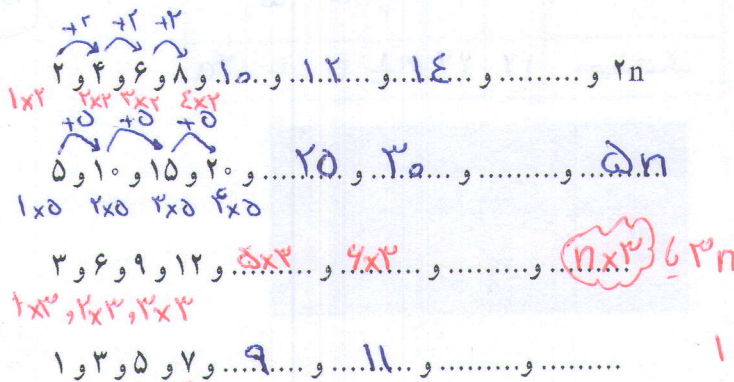 +۲ +۲ +۲
۲ و ۴ و ۶ و ۸ و ۱۰ و ۱۲ و ۱۴ و ......... و ۲n
۱×۲ ۲×۲ ۳×۲ ۴×۲
+۵ +۵ +۵
۵ و ۱۰ و ۱۵ و ۲۰ و ۲۵ و ۳۰ و ......... و ۵n
۱×۵ ۲×۵ ۳×۵ ۴×۵
۳ و ۶ و ۹ و ۱۲ و ۵×۳ و ۶×۳ و ......... و n×۳ یا ۳n
۱×۳ , ۲×۳ , ۳×۳
۱ و ۳ و ۵ و ۷ و ۹ و ۱۱ و ......... و .........